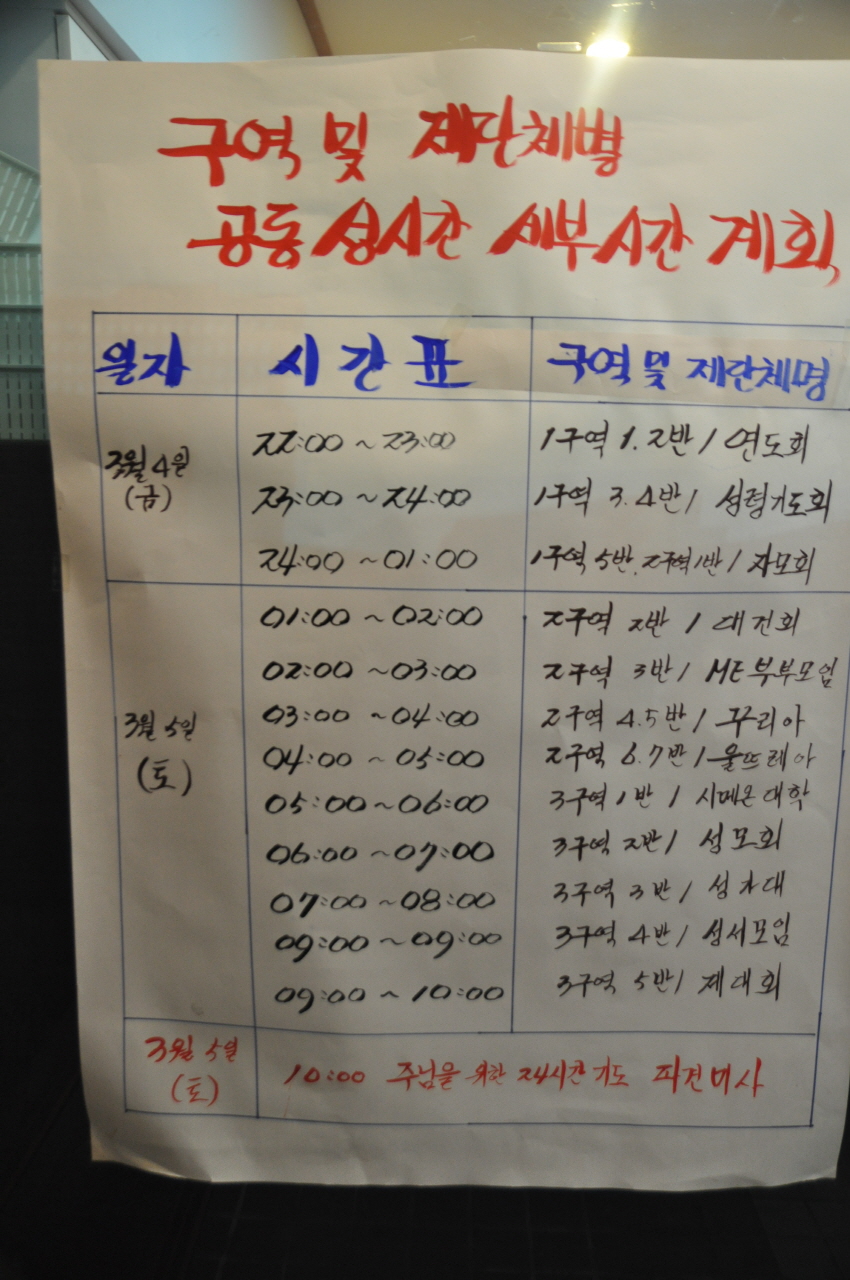 구역 및 제단체별
공동 성시간 세부시간 계획
일자 시간표 구역 및 제단체명
3월 4일 (금)
22:00 ~ 23:00 1구역 1.2반 / 연도회
23:00 ~ 24:00 1구역 3.4반 / 성령기도회
24:00 ~ 01:00 1구역 5반. 2구역1반 / 자모회
3월 5일 (토)
01:00 ~ 02:00 2구역 2반 / 대건회
02:00 ~ 03:00 2구역 3반 / ME부부모임
03:00 ~ 04:00 2구역 4.5반 / 꾸리아
04:00 ~ 05:00 2구역 6.7반 / 울뜨레아
05:00 ~ 06:00 3구역 1반 / 시메온대학
06:00 ~ 07:00 3구역 2반 / 성모회
07:00 ~ 08:00 3구역 3반 / 성가대
09:00 ~ 09:00 3구역 4반 / 성서모임
09:00 ~ 10:00 3구역 5반 / 제대회
3월 5일 (토)
10:00 주님을 위한 24시간 기도 파견미사